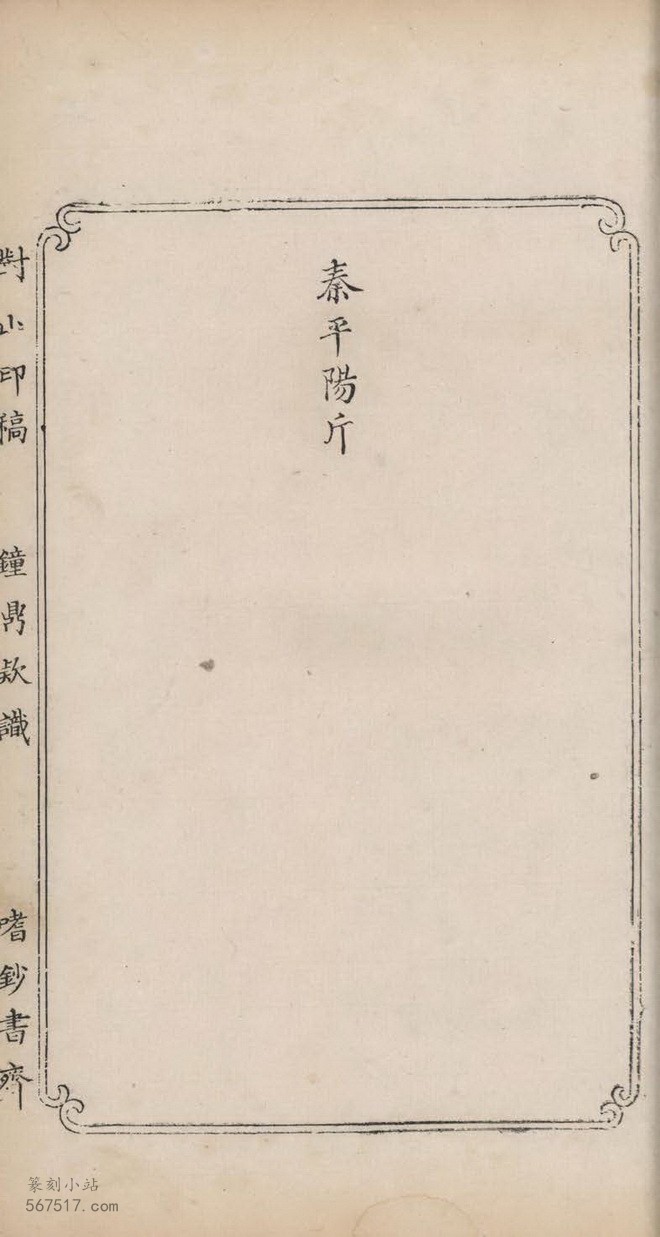 秦平陽斤
對山印稿 鐘鼎款識 嗜鈔書齋
篆刻小站
567517.com